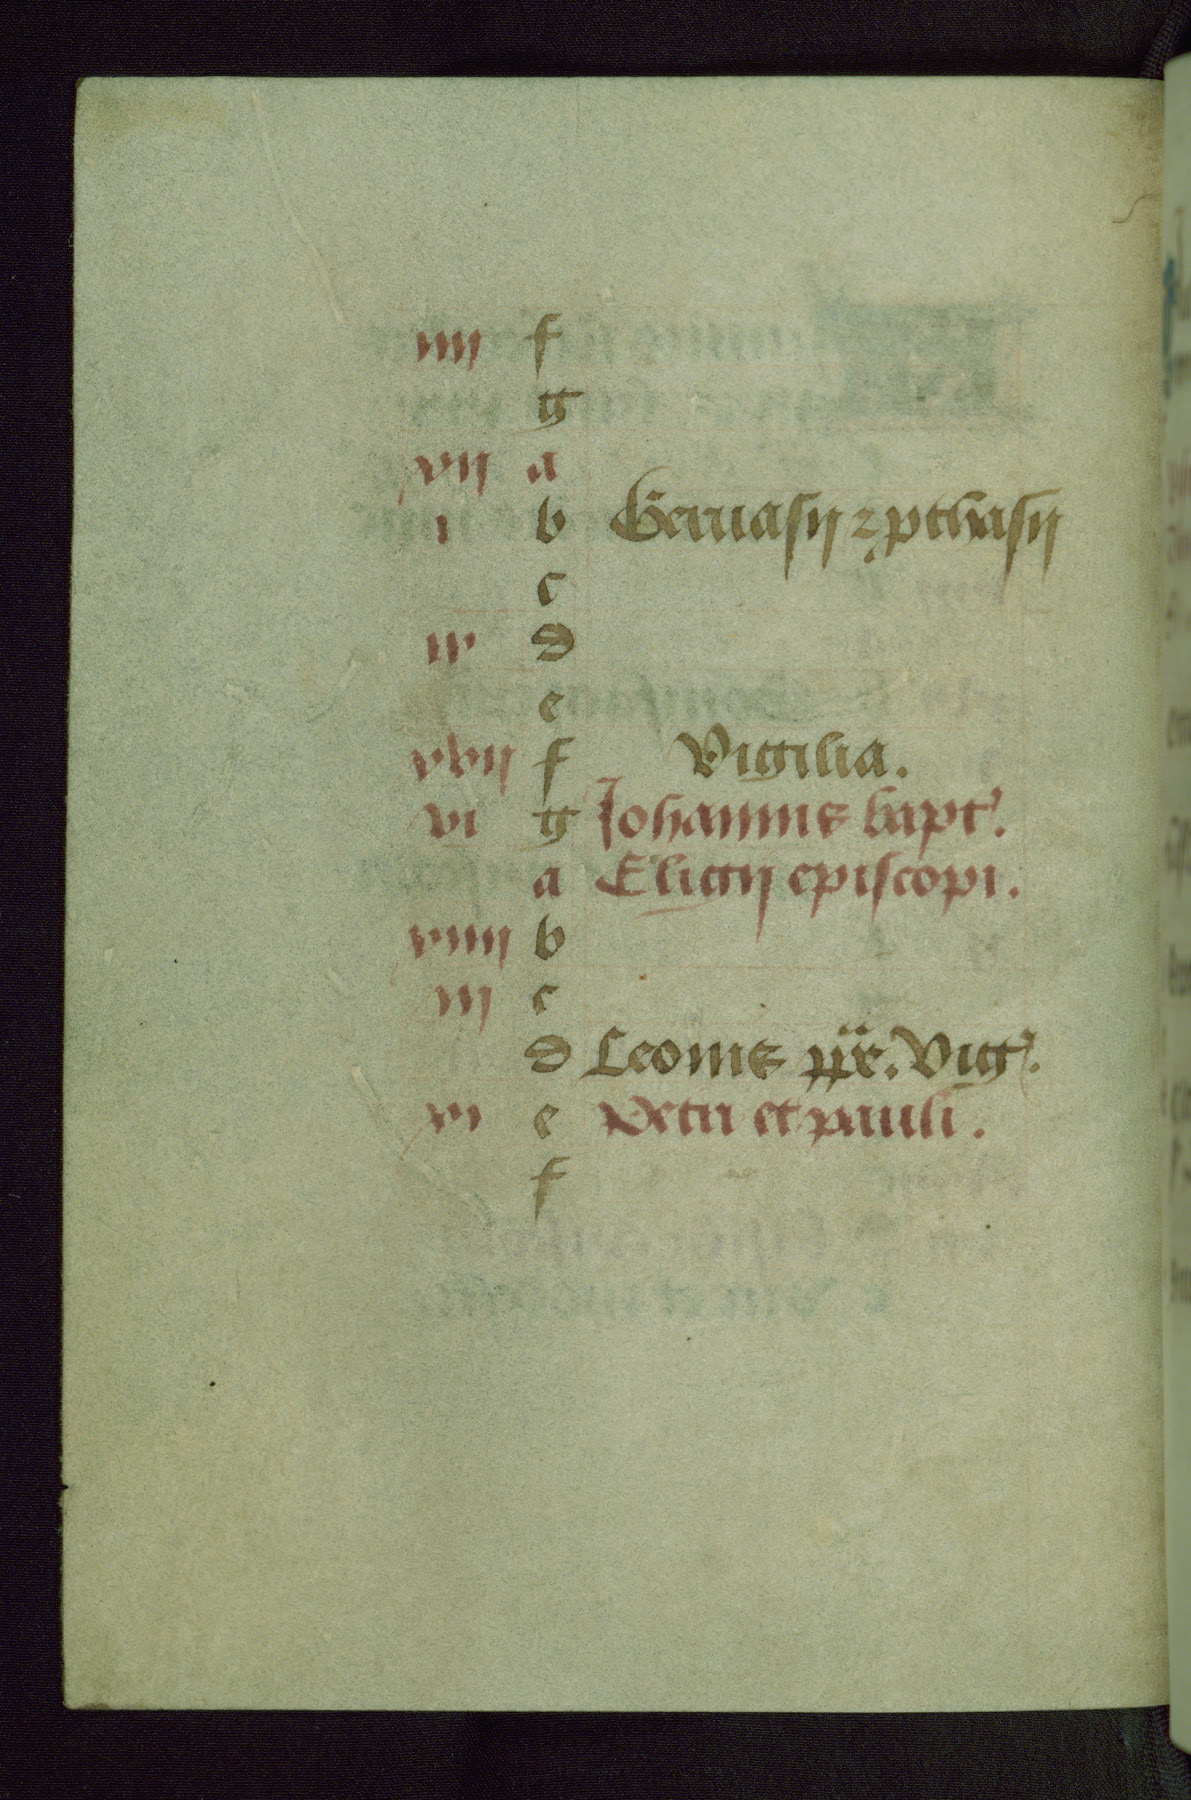 iiij f
g
vij a
i b Geruasij ⁊ ꝓthasij
c
iv d
e
vvij f Vigilia.
vi g Johannis bapt'.
a Eligij episcopi.
viiij b
iij c
d Leonis pp̄e. Vig'.
vi e Petri et pauli.
f